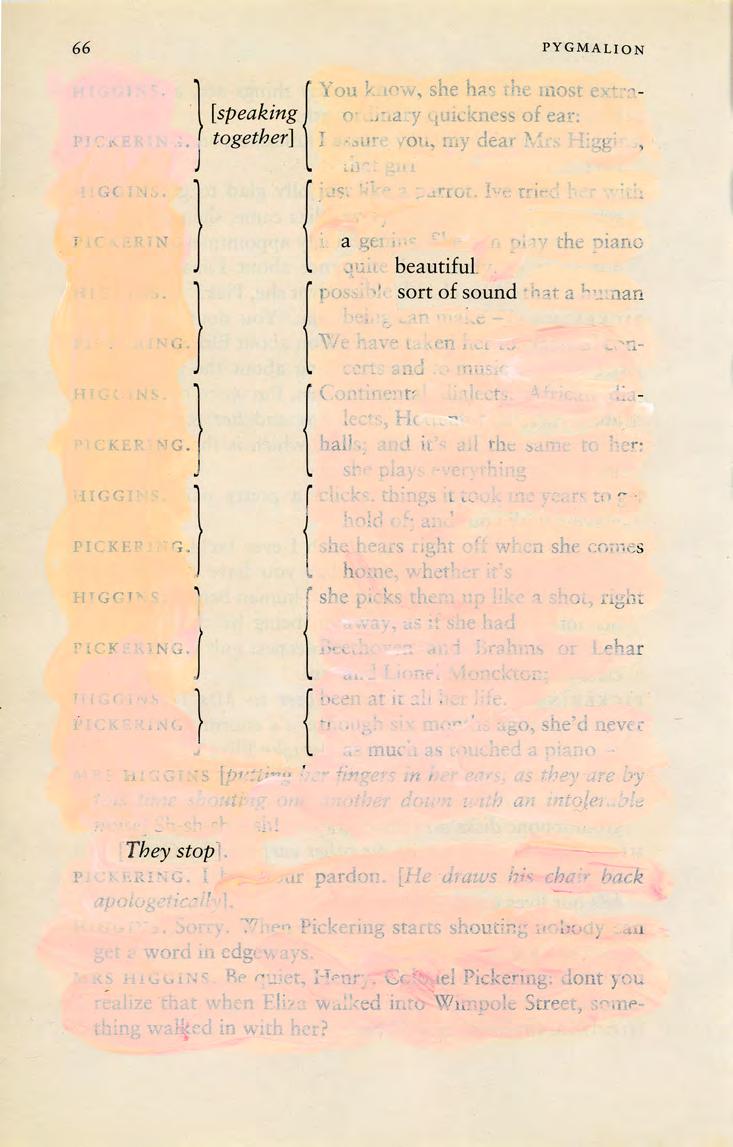 66 PYGMALION
HIGGINS. You know, she has the most extra-
[speaking ordinary quickness of ear:
PICKERING. together] I assure you, my dear Mrs Higgins,
that girl
HIGGINS. just like a parrot. Ive tried her with
PICKERING a genius. play the piano
quite beautiful
HIGGINS. possible sort of sound that a human
being can make –
PICKERING. We have taken her to con-
certs and to music
HIGGINS. Continental dialects. African dia-
lects,
PICKERING. halls; and it's all the same to her:
she plays everything
HIGGINS. clicks. things it took me years to get
hold of; and
PICKERING. she hears right off when she comes
home, whether it's
HIGGINS. she picks them up like a shot, right
away, as if she had
PICKERING. Beethoven and Brahms or Lehar
and Lionel Monckton;
HIGGINS been at it all her life.
PICKERING though six months ago, she'd never
as much as touched a piano –
MRS HIGGINS [putting her fingers in her ears, as they are by
this time shouting one another down with an intolerable
noise] Sh-sh-sh – sh!
[They stop].
PICKERING. I your pardon. [He draws his chair back
apologetically].
HIGGINS. Sorry. When Pickering starts shouting nobody can
get a word in edgeways.
MRS HIGGINS. Be quiet, Henry. Colonel Pickering: dont you
realize that when Eliza walked into Wimpole Street, some-
thing walked in with her?